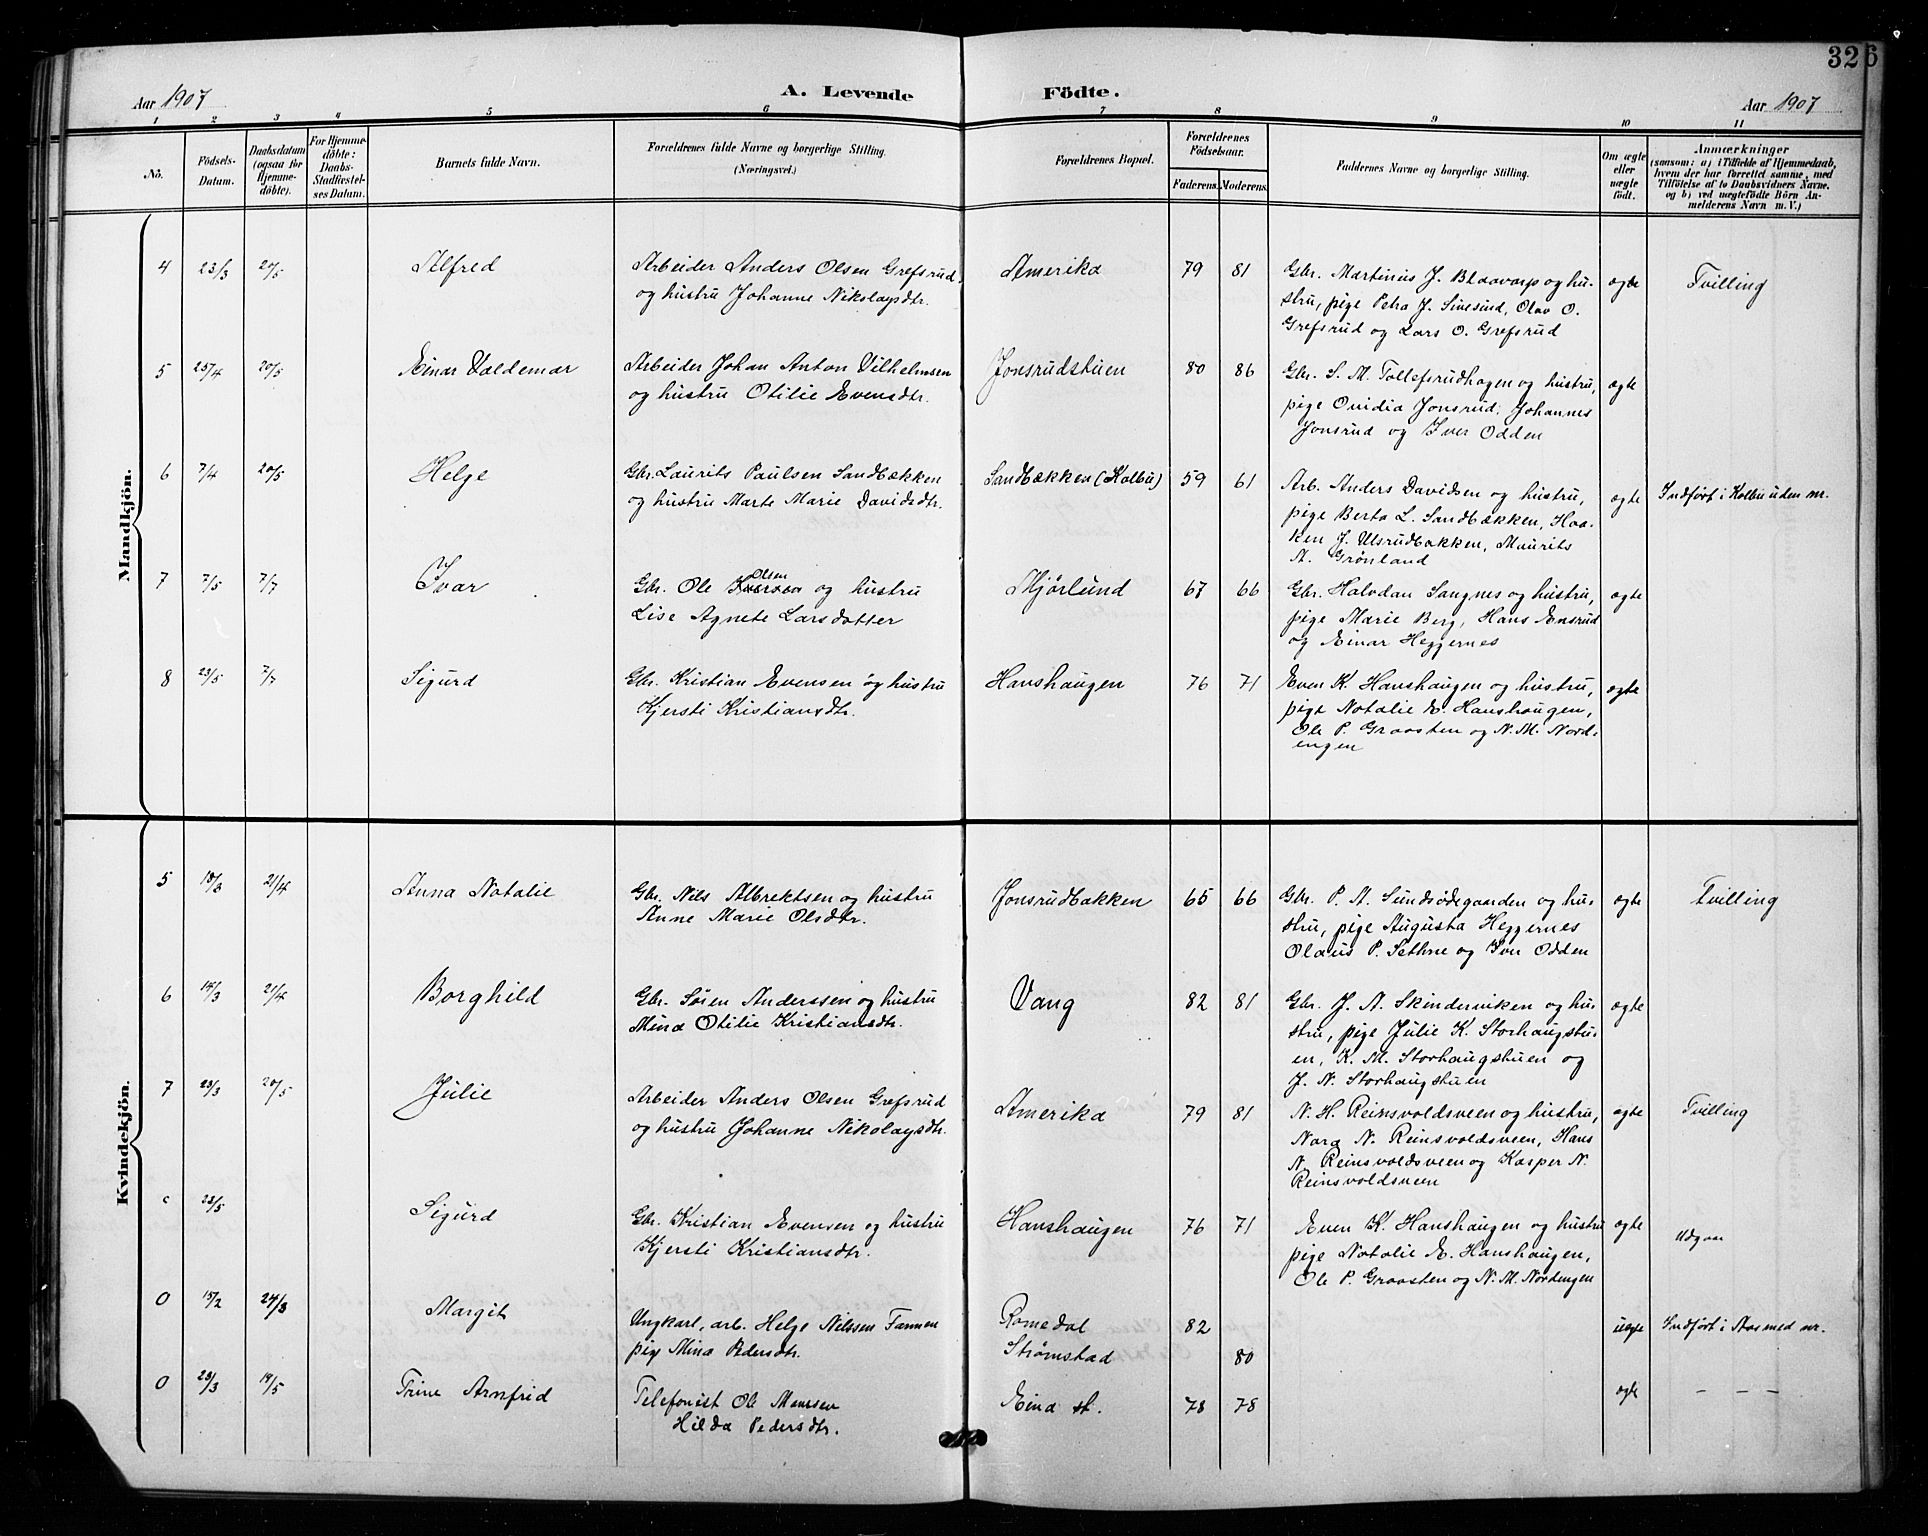 326
Aar 1907
A. Levende Födte.
Aar 1907
1 2 3 4 5 6 7 8 9 10 11
No.
Födsels-Datum.
Daabsdatum (ogsaa for Hjemmedöbte).
For Hjemmedöbte: Daabs-Stadfæstelses Datum.
Barnets fulde Navn.
Forældrenes fulde Navne og borgerlige Stilling. (Næringsvei.)
Forældrenes Bopæl.
Forældrenes Födselsaar.
Faderens. Moderens.
Faddernes Navne og borgerlige Stilling.
Om ægte eller uægte födt.
Anmærkninger
(saasom: a) i Tilfælde af Hjemmedaab, hvem der har forrettet samme, med Tilföielse af to Daabsvidners Navne, og b) ved uægtefödte Börn Anmelderens Navn m. V.)
Mandkjön.
4 23/3 20/5 Alfred
Arbeider Anders Olsen Grefsrud
og hustru Johanne Nikolaysdtr.
Amerika 79 81
Gbr. Martinius J. Blaavarp og hu-
stru, pige Petra J. Sivesind, Olav O.
Grefsrud og Lars O. Grefsrud
ægte Tvilling
5 25/4 20/5 Einar Valdemar
Arbeider Johan Anton Vilhelmsen
og hustru Otilie Evensdtr.
Jonsrudstuen 80 86
Gbr. S. M. Tollefsrudhagen og hustru,
pige Ovidia Jonsrud, Johannes
Jonsrud og Iver Odden
ægte
6 7/4 20/5 Helge
Gbr. Laurits Paulsen Sandbækken
og hustru Marte Marie Davidsdtr.
Sandbækken (Kolbu) 59 61
Arb. Anders Davidsen og hustru,
pige Berta L. Sandbækken, Haa-
ken J. Ulsrudbakken, Maurits
A. Grønland
ægte Indført i Kolbu uden nr.
7 7/5 7/7 Ivar
Olsen
Gbr. Ole og hustru
Lise Agnete Larsdatter
Mjørlund 67 66
Gbr. Halvdan Sangnes og hustru,
pige Marie Berg, Hans Ensrud
og Einar Heggernes
ægte
8 23/5 7/7 Sigurd
Gbr. Kristian Evensen og hustru
Kjersti Kristiansdtr.
Hanshaugen 76 71
Even K. Hanshaugen og hustru,
pige Natalie E. Hanshaugen,
Ole P. Graasten og N. M. Nord-
engen
ægte
Kvindekjön.
5 18/3 21/4 Anna Natalie
Gbr. Nils Albrektsen og hustru
Anne Marie Olsdtr.
Jonsrudbakken 65 66
Gbr. P. A. Sundsødegaarden og hu-
stru, pige Augusta Heggernes
Olaus P. Sethne og Iver Odden
ægte Tvilling
6 14/3 21/4 Borghild
Gbr. Søren Anderssen og hustru
Mina Otilie Kristiansdtr.
Vang 82 81
Gbr. J. A. Skinderviken og hu-
stru, pige Julie K. Storhaugstu-
en, K. M. Storhaugstuen og
J. N. Storhaugstuen
ægte
7 23/3 20/5 Julie
Arbeider Anders Olsen Grefsrud
og hustru Johanne Nikolaysdtr.
Amerika 79 81
N. H. Reinsvoldsveen og hustru,
Nora N. Reinsvoldsveen, Hans
N. Reinsvoldsveen og Kasper N.
Reinsvoldsveen
ægte Tvilling
23/5 Sigurd
Gbr. Kristian Evensen og hustru
Kjersti Kristiansdtr.
Hanshaugen 76 71
Even K. Hanshaugen og hustru
pige Natalie E. Hanshaugen,
Ole P. Graasten og N. M. Nordengen
ægte Udgaar
0 15/2 24/3 Margit
Ungkarl, arb. Helge Nilssen Fannen
pige Mina Pedersdtr.
Romedal 82
Strømstad 80
uægte Indført i Aas med nr.
0 23/3 19/5 Trine Arnfrid
Telefonist Ole Monsen
Hilda Pedersdtr.
Eina st. 78 78
ægte - - -